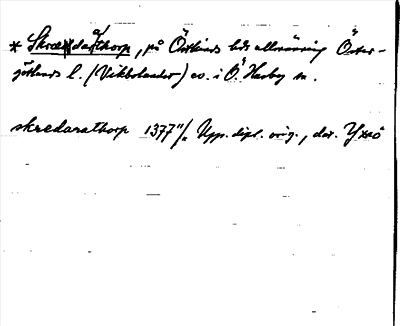 * Skræddaathorp, på Östkinds hds allmänning Öster-
götlands l. (Vikbolandet) ev. i Ö. Husby sn.
skredarathorp 1377 11/2 Upp. dipl. orig., dat. Yxeö